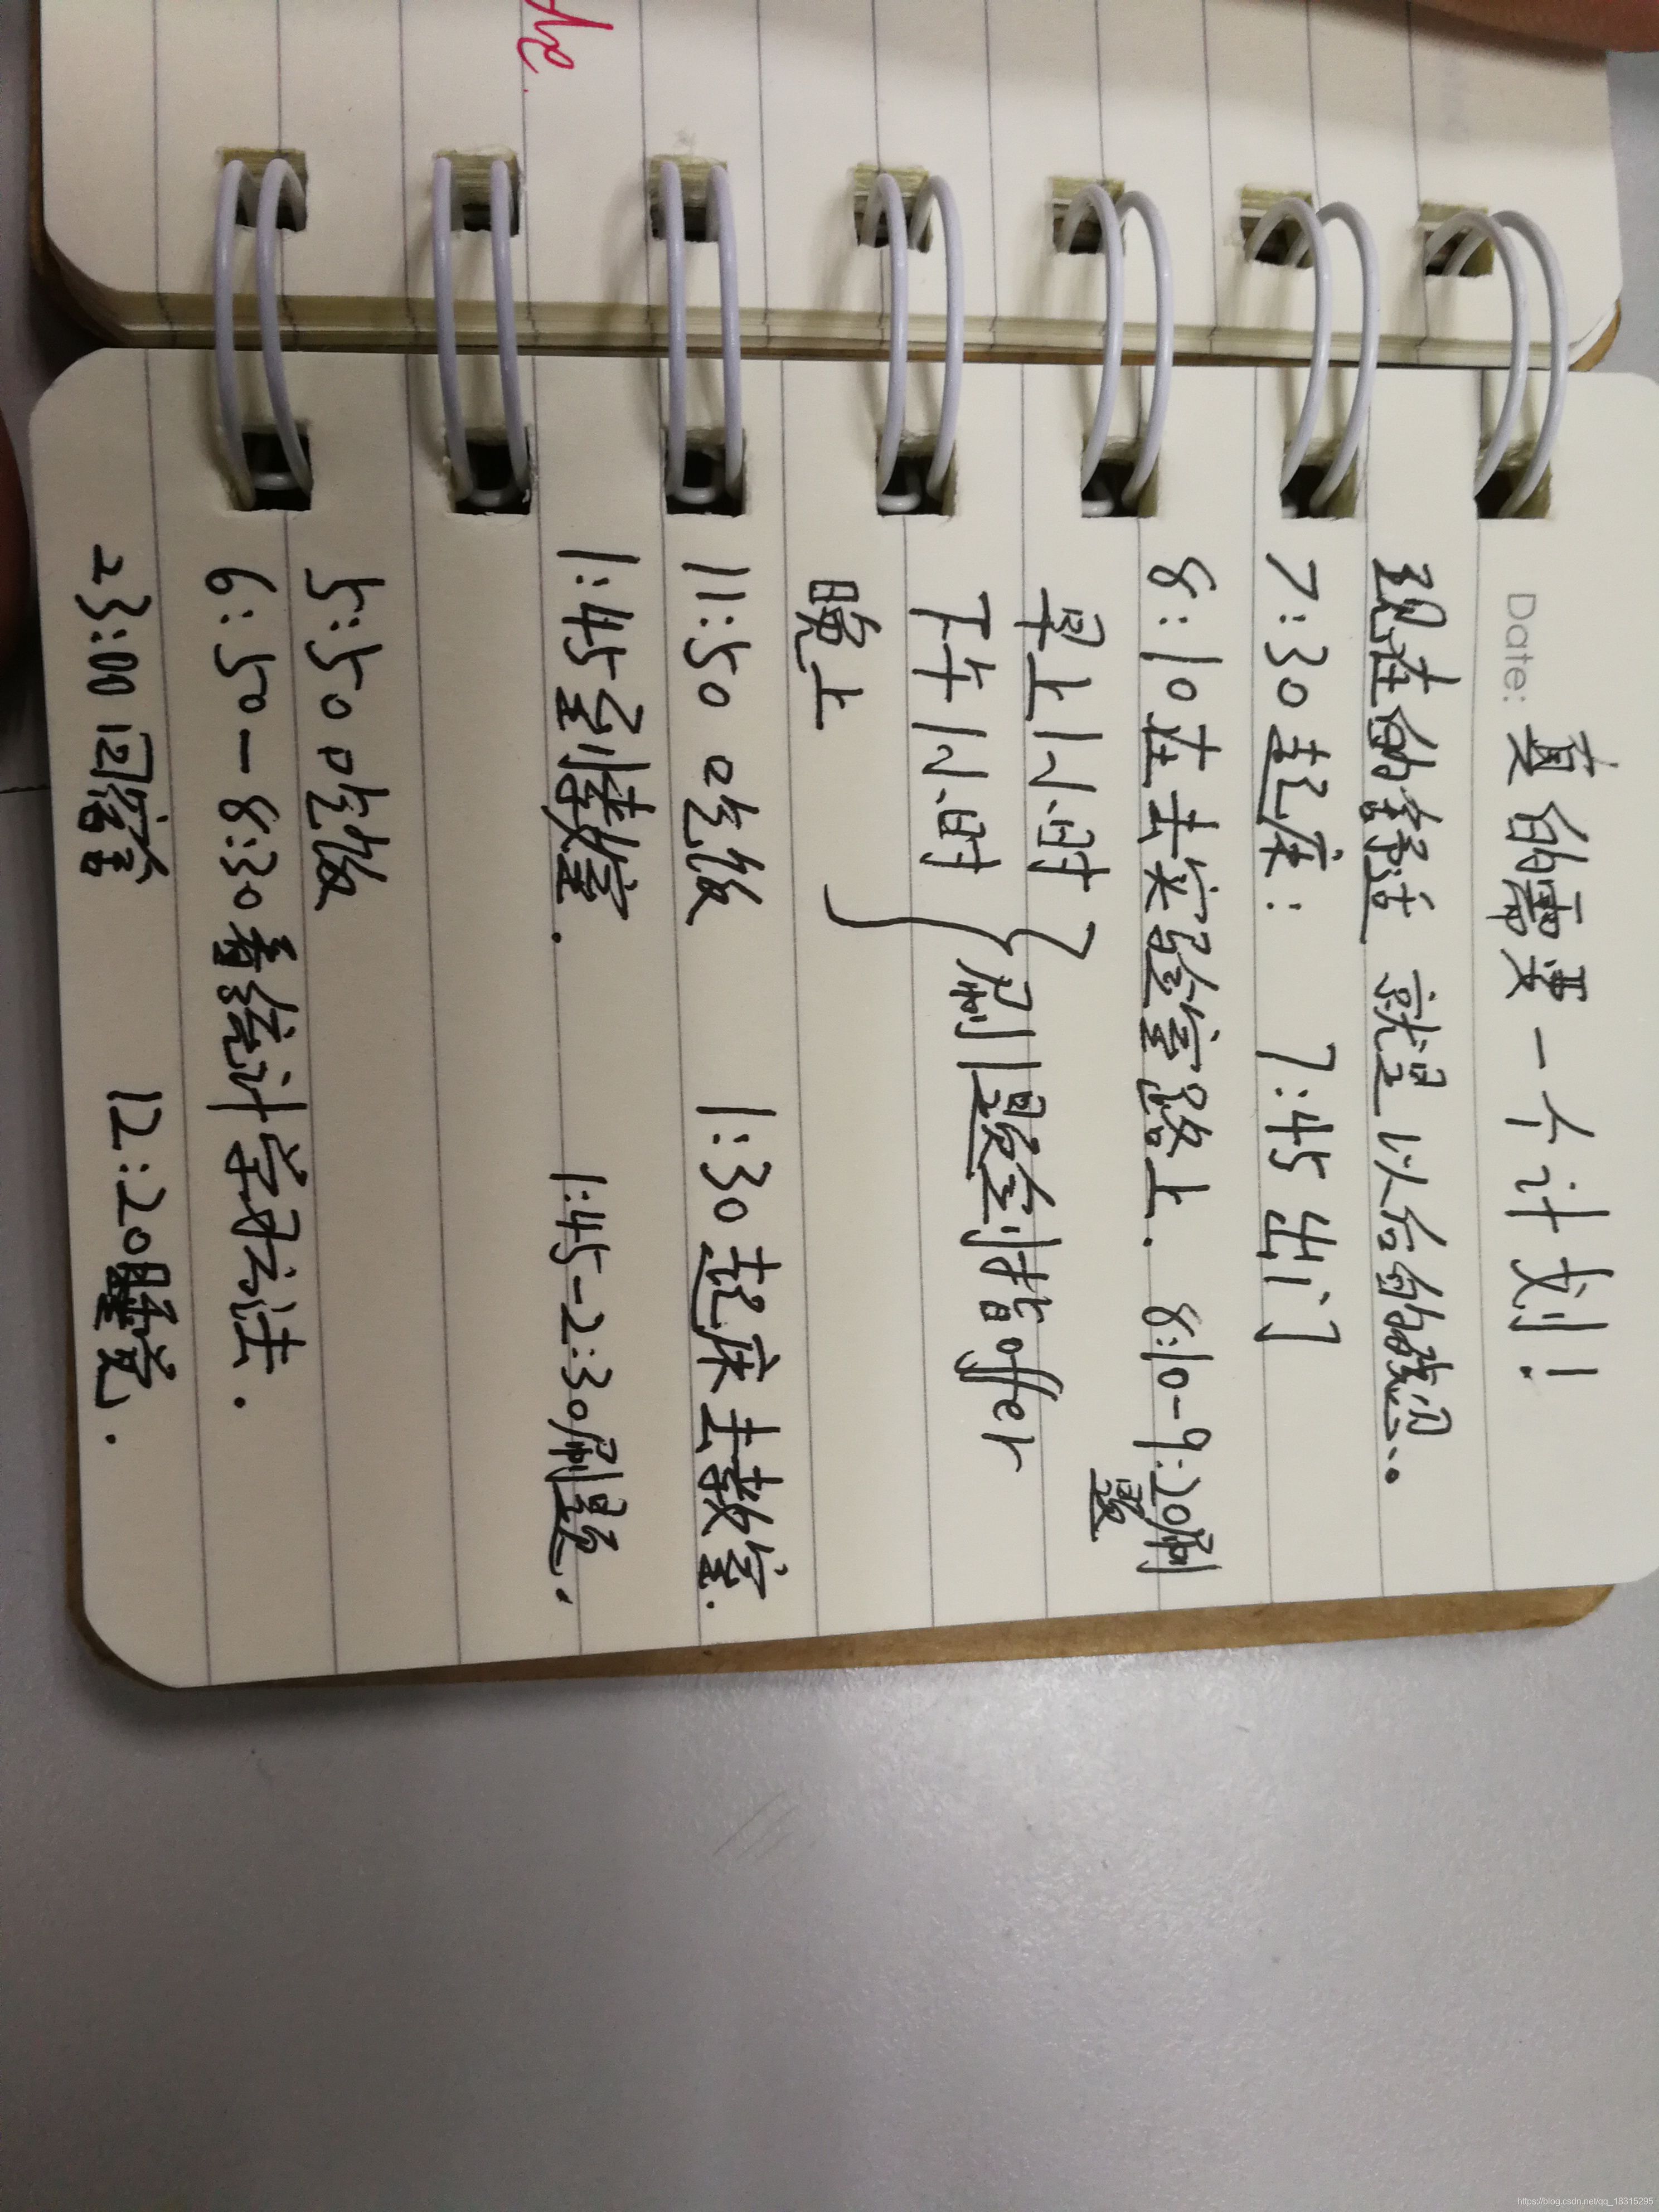 he.
Date: 真的需要一个计划!
现在的终结 就是以后的感恩。
7:30起床: 7:45出门
8:10在去实验室路上. 8:10-9:20刷题
早上1小时
下午1小时 } 刷题剑指offer
晚上
11:50 吃饭 1:30起床去教室.
1:45到教室. 1:45-2:30刷题.
5:50吃饭
6:50-8:30看统计学习方法.
23:00回宿舍 12:20睡觉.
https://blog.csdn.net/qq_18315295